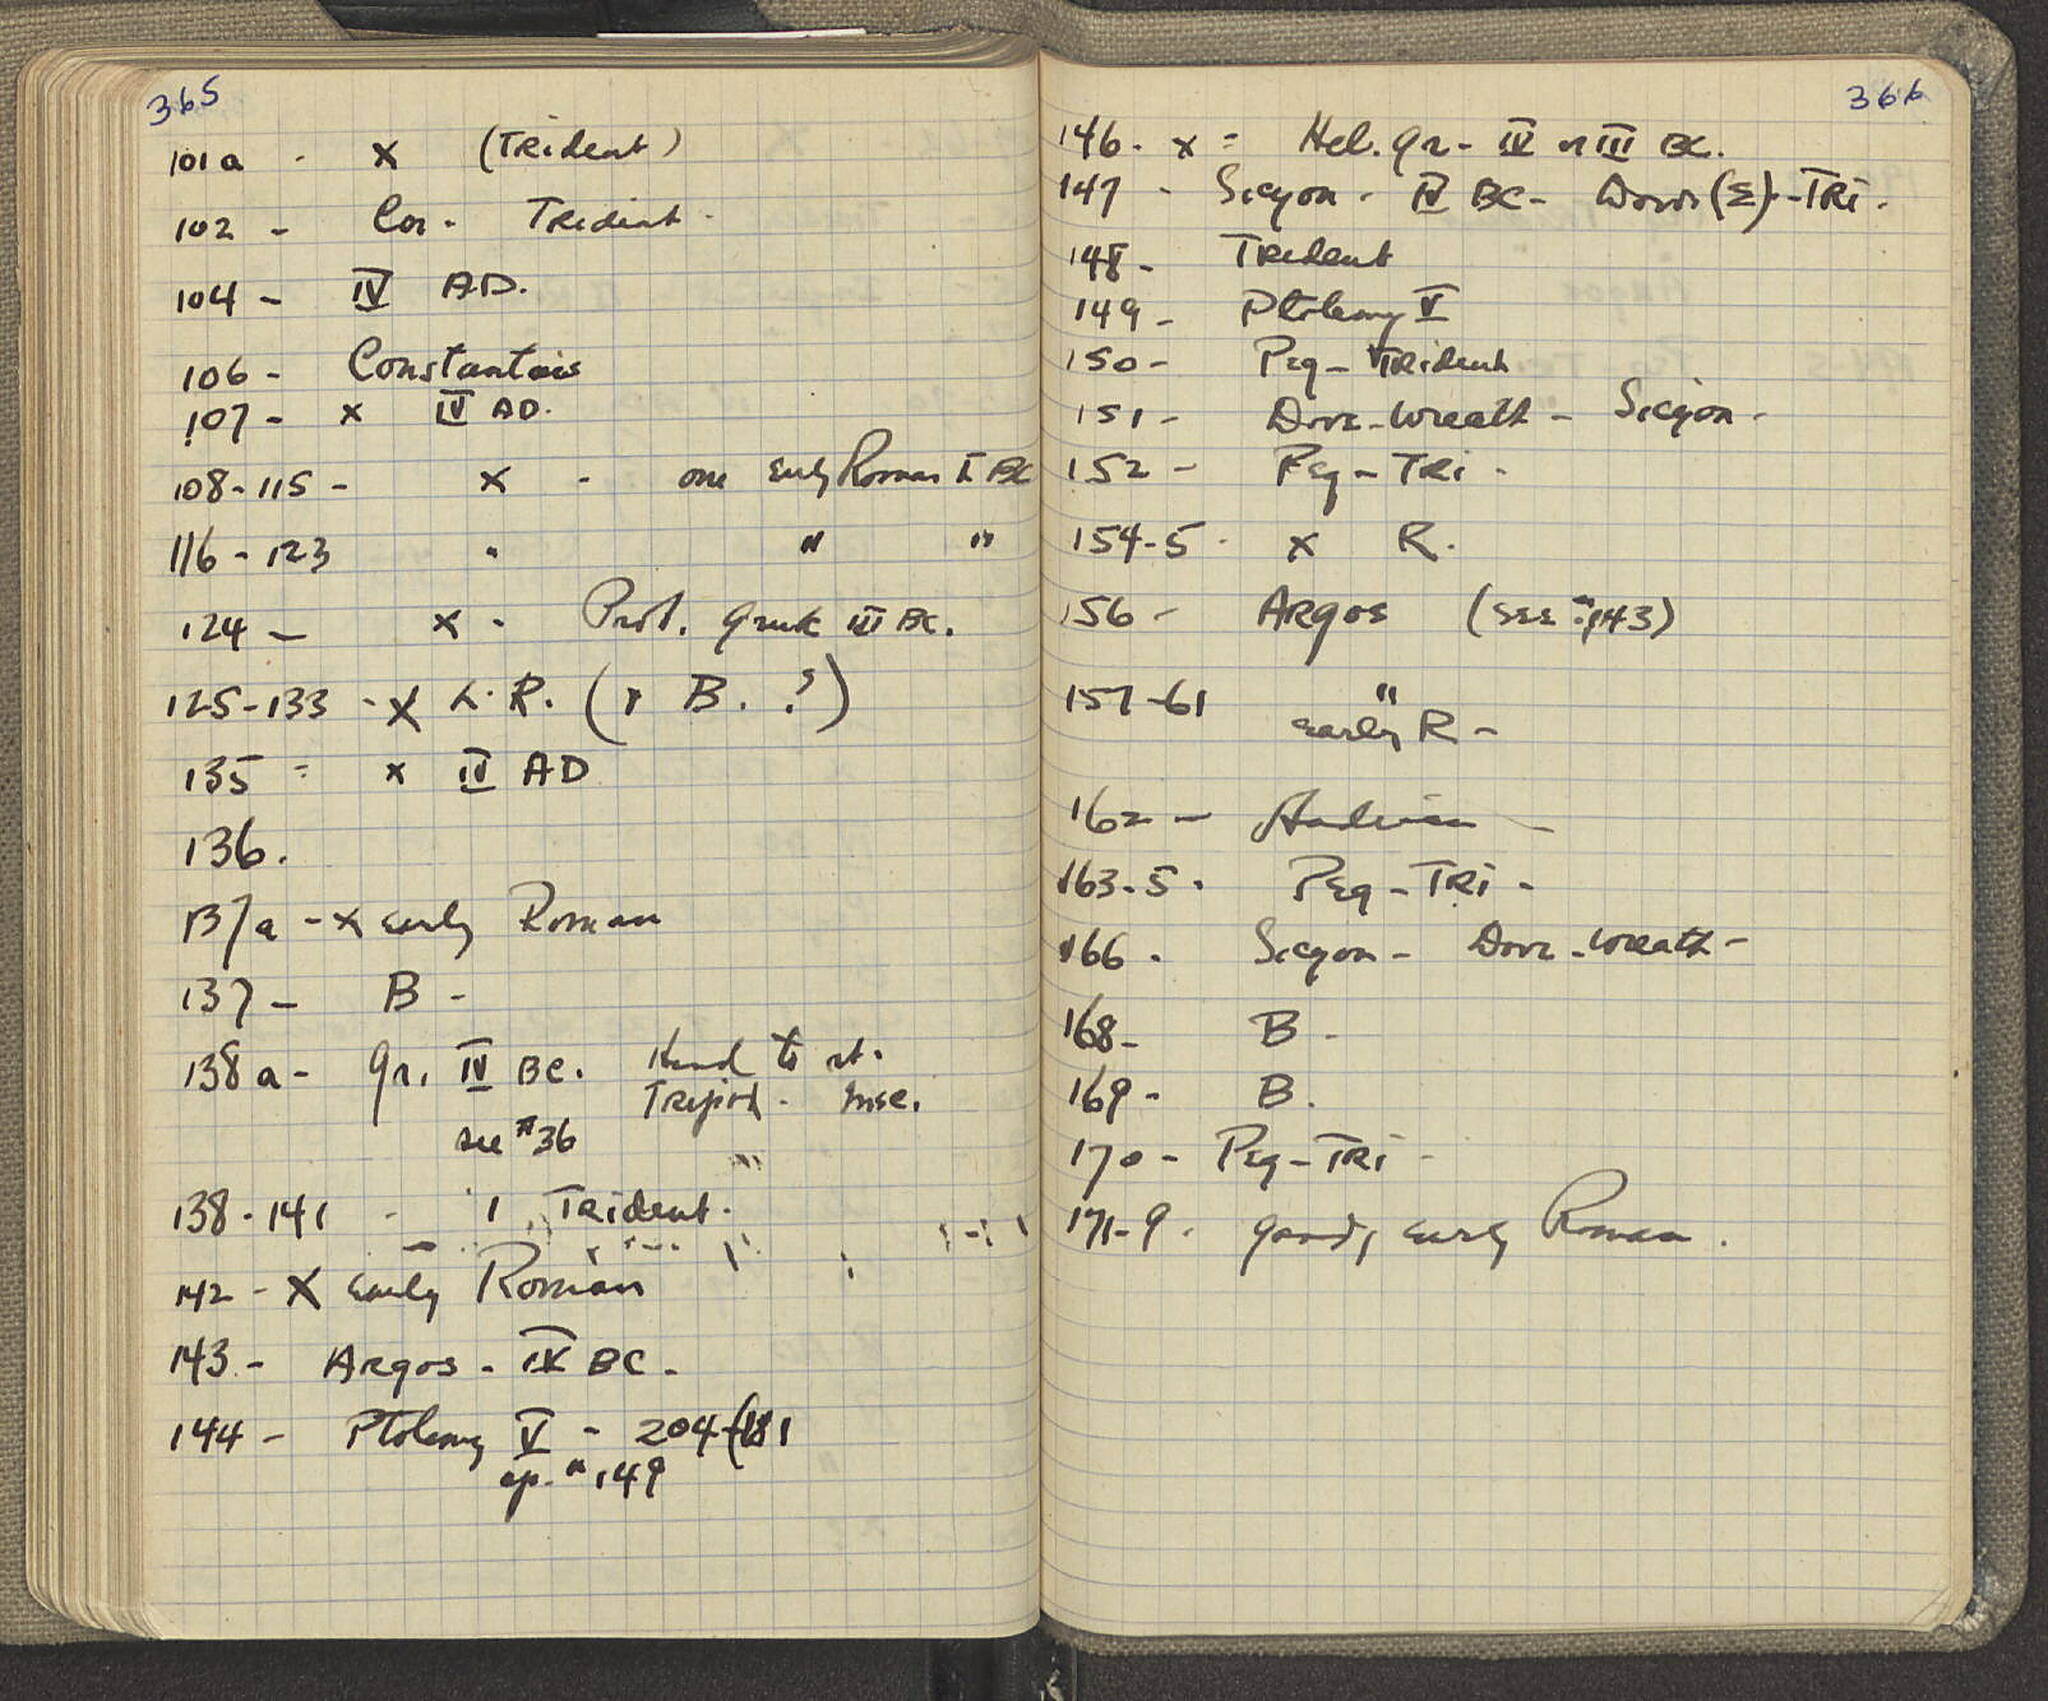 365
101a - x (Trident)
102 - Cor. Trident -
104 - IV AD.
106 - Constantius
107 - x IV AD.
108-115 - x - one Early Roman I BC
116-123 " " "
124 - x - Prob. Greek III BC.
125-133 - x L.R. (+ B. ?)
135 - x IV AD
136.
137a - x Early Roman
137 - B -
138a - Gr. IV BC. Head to rt.
Tripod - Insc.
see #36
138-141 - 1 Trident.
142 - x Early Roman
143 - Argos - IV BC -
144 - Ptolemy V - 204-181
cp. #149
366
146 - x = Hel. Gr - IV or III BC.
147 - Sicyon - IV BC - Dove (Σ) - TRi.
148 - Trident
149 - Ptolemy V
150 - Peg - Trident
151 - Dove-wreath - Sicyon -
152 - Peg - TRi -
154-5 - x R.
156 - Argos (see #143)
157-61 "
early R -
162 - Hadrian -
163-5 - Peg - TRi -
166 - Sicyon - Dove-wreath -
168 - B -
169 - B.
170 - Peg - TRi -
171-9 - good, early Roman.